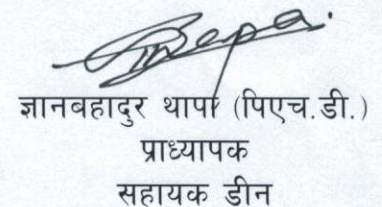 ज्ञानबहादुर थापा (पिएच.डी.)
प्राध्यापक
सहायक डीन